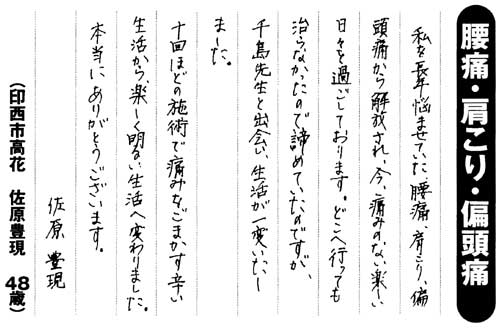 腰痛・肩こり・偏頭痛
私を長年悩ませていた腰痛、肩こり、偏
頭痛から解放され、今、痛みのない楽しい
日々を過ごしております。どこへ行っても
治らなかったので諦めていたのですが、
千島先生と出会い、生活が一変いたし
ました。
十回ほどの施術で痛みをごまかす辛い
生活から、楽しく明るい生活へ変わりました。
本当にありがとうございます。
佐原 豊現
（印西市高花 佐原豊現 48歳）